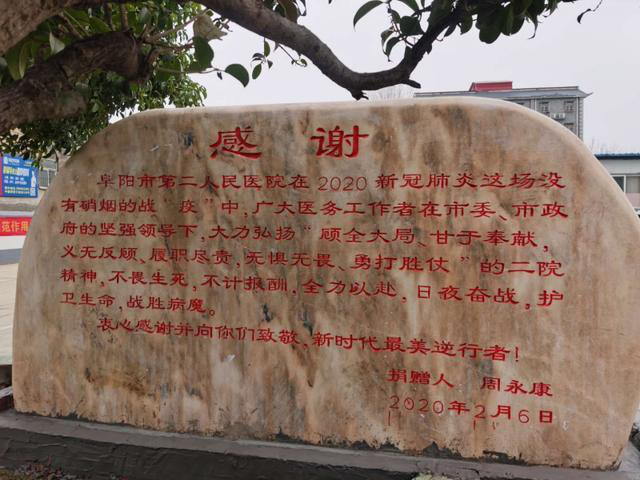 感谢
阜阳市第二人民医院在2020新冠肺炎这场没
有硝烟的战"疫"中，广大医务工作者在市委、市政
府的坚强领导下，大力弘扬"顾全大局、甘于奉献，
义无反顾、履职尽责，无惧无畏、勇打胜仗"的二院
精神，不畏生死，不计报酬，全力以赴，日夜奋战，护
卫生命，战胜病魔。
衷心感谢并向你们致敬，新时代最美逆行者！
捐赠人 周永康
2020年2月6日
范作用